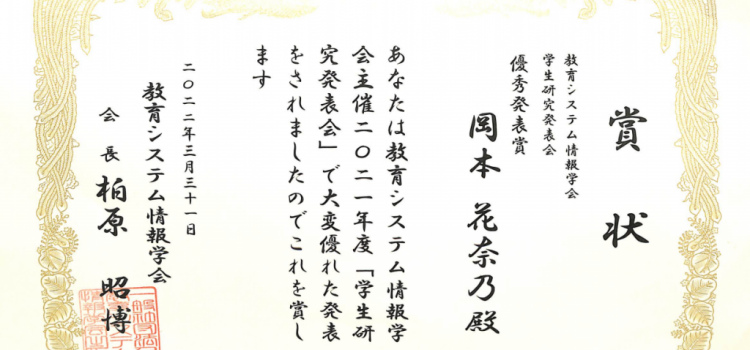 賞状
教育システム情報学会
学生研究発表会
優秀発表賞
岡本 花奈乃 殿
あなたは教育システム情報学
会主催二〇二一年度「学生研
究発表会」で大変優れた発表
をされましたのでこれを賞し
ます
二〇二二年三月三十一日
教育システム情報学会
会長 柏原 昭博